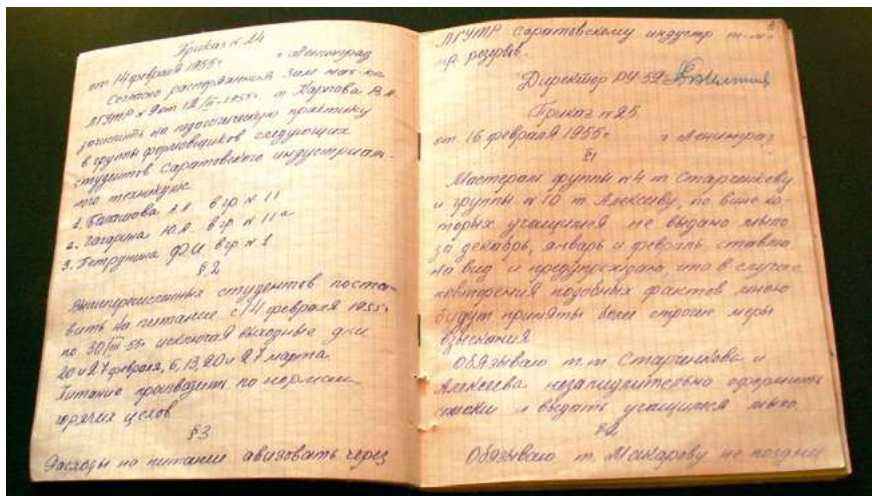 Приказ №24
от 14 февраля 1955г г Ленинград
Согласно распоряжения Зам нач-ка
ЛГУТР №9 от 12/II-1955г т Карпова В.А.
зачислить на педагогическую практику
в группы формовщиков следующих
студентов Саратовского индустриаль-
ного техникума:
1. Балашова А.А. в гр № 11
2. Гагарина Ю.А. в гр № 11а
3. Петрунина Ф И в гр № 1
§ 2
Вышеперечисленных студентов поста-
вить на питание с 14 февраля 1955г
по 30/III 55г исключая выходные дни
20 и 27 февраля, 6, 13, 20 и 27 марта
Питание производить по нормам
горячих цехов
§ 3
Расходы на питание авизовать через
ЛГУТР Саратовскому индустр т-м
тр. резервов.
Директор РУ 52
Приказ №25
от 16 февраля 1955г г Ленинград
§1
Мастерам группы №4 т Старченкову
и группы №10 т Алексееву, по вине ко-
торых учащимся не выдано мыло
за декабрь, январь и февраль ставлю
на вид и предупреждаю, что в случае
повторения подобных фактов мною
будут приняты более строгие меры
взыскания
Обязываю т.т Старченкова и
Алексеева незамедлительно оформить
списки и выдать учащимся мыло
§2
Обязываю т. Макарову не поздне